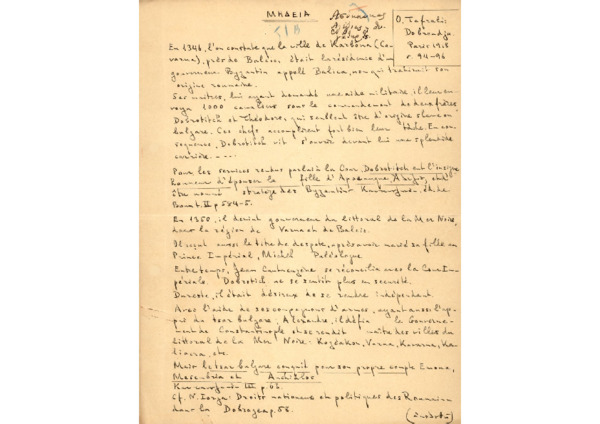 ΜΗΔΕΙΑ
O. Tafrali:
Dobroudja
Paris 1918
p. 94-96
En 1346, l'on constate que la ville de Karbona (Ca-
varna), près de Balčic, était la résidence d'un
gouverneur Byzantin appelé Balica, nom qui trahirait son
origine roumaine.
Ses maîtres, lui ayant demandé une aide militaire il leur en-
voya 1000 cavaliers sous le commandement de deux frères
Dobrotitch et Théodore, qui semblent être d'origine slave ou
bulgare. Ces chefs accomplirent fort bien leur tâche. En con-
séquence, Dobrotitch vit s'ouvrir devant lui une splendide
carrière. - - -
Pour les services rendus par lui à la Cour, Dobrotitch eut l'insigne
honneur d'épouser la fille d'Apocauque, et d'
être nommé stratège des Byzantins
Bonn t. II p 584-5.
En 1350, il devint gouverneur du littoral de la Mer Noire,
dans la région de Varna et de Balcic.
Il reçut aussi le titre de despote, après avoir marié sa fille au
Prince Impérial, Michel Paléologue
Entre temps, Jean Cantacuzène se réconcilia avec la Cour Im-
périale. Dobrotich ne se sentit plus en sécurité.
Du reste, il était désireux de se rendre indépendant.
Avec l'aide de ses compagnons d'armes, ayant aussi l'ap-
pui du tsar bulgare, Alexandre, il défia le Gouverne-
ment de Constantinople et se rendit maître des villes du
littoral de la Mer Noire: Kozeakon, Varna, Kavarna, Ka-
liacra, etc.
Mais le tsar bulgare conquit pour son propre compte Emona,
Mesembria et Anchialos
III p. 66.
Cf. N. Iorga: Droits nationaux et politiques des Roumains
dans la Dobrogea p. 56.